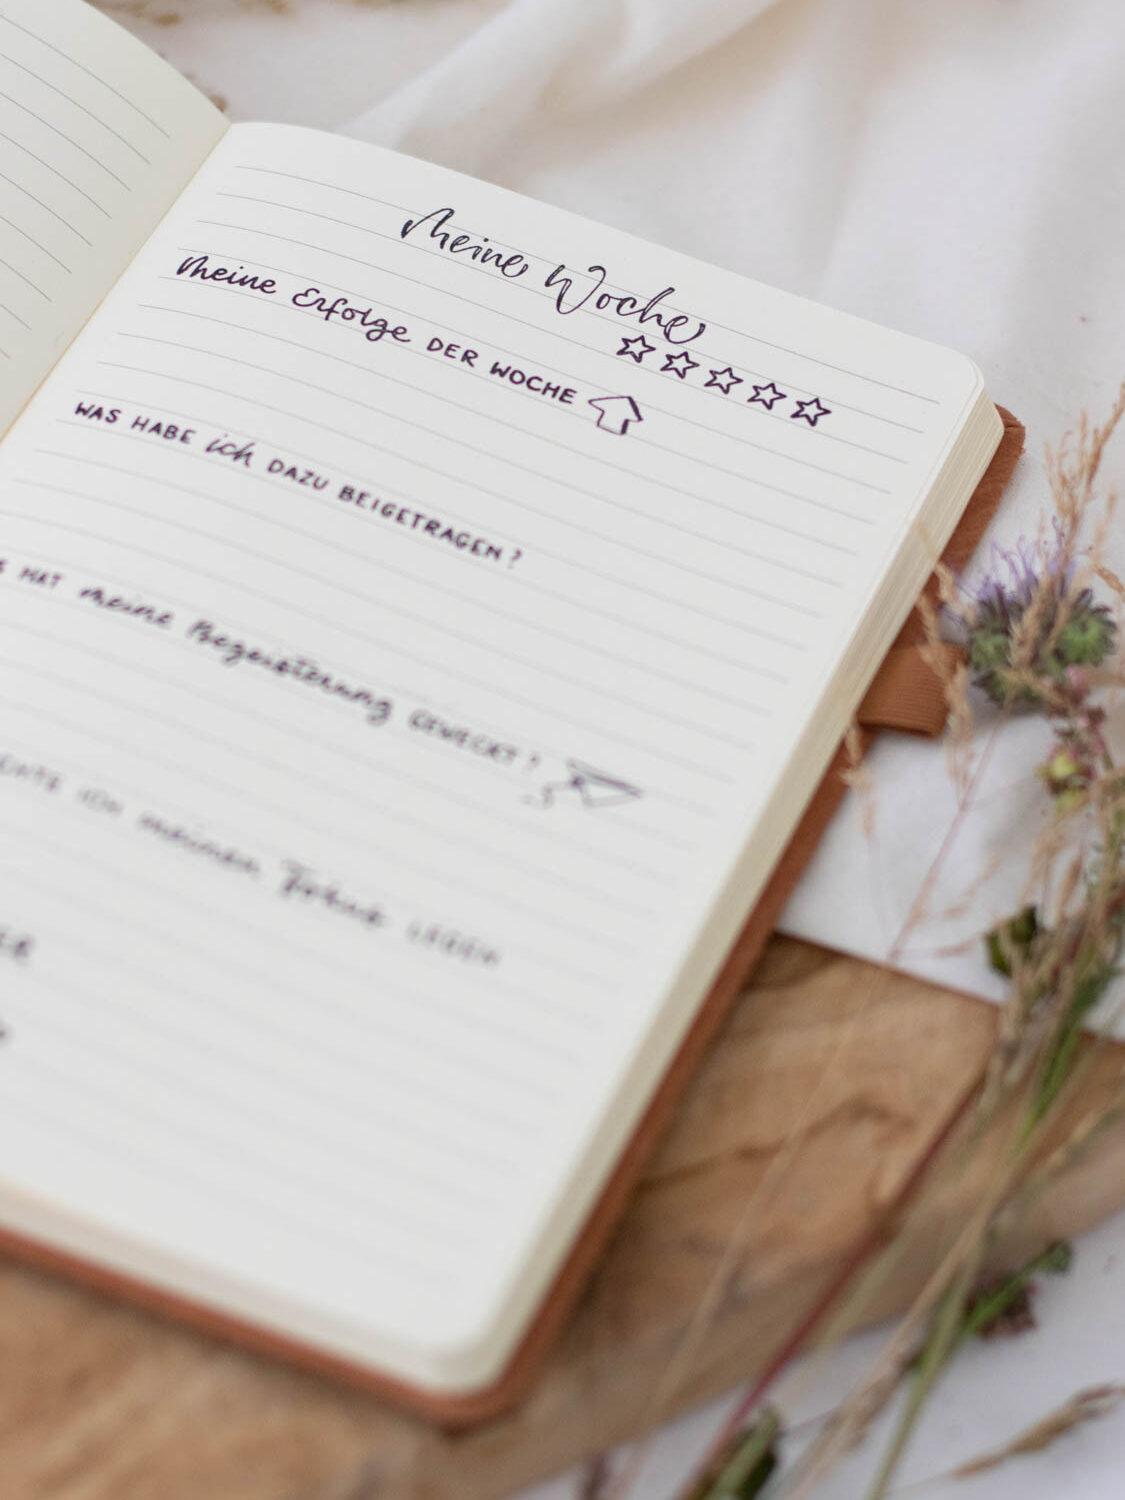 Meine Woche
Meine Erfolge DER WOCHE
WAS HABE ich DAZU BEIGETRAGEN?
HAT meine Begeisterung GEWECKT?
ICH meinen Fokus LEGEN